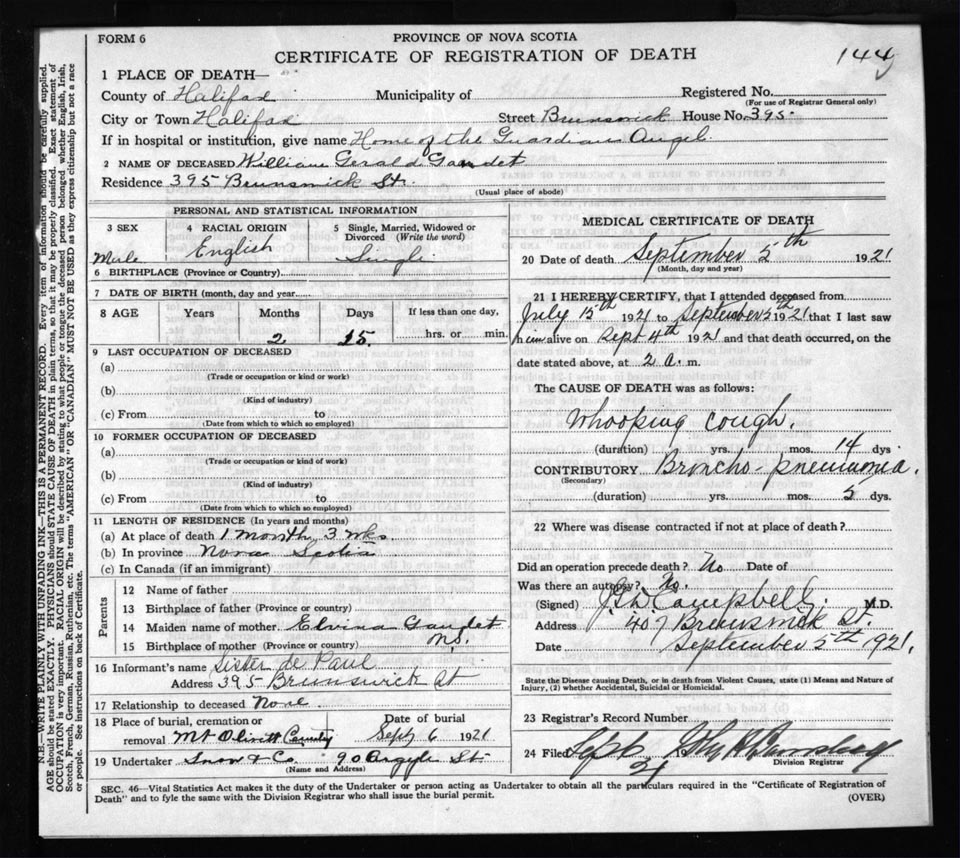 FORM 6
PROVINCE OF NOVA SCOTIA
CERTIFICATE OF REGISTRATION OF DEATH
144
1 PLACE OF DEATH—
County of Halifax Municipality of Registered No.
(For use of Registrar General only)
City or Town Halifax Street Brunswick House No. 395.
If in hospital or institution, give name Home of the Guardian Angel
2 NAME OF DECEASED William Gerald Gaudet
Residence 395 Brunswick St.
(Usual place of abode)
PERSONAL AND STATISTICAL INFORMATION
3 SEX
Male
4 RACIAL ORIGIN
English
5 Single, Married, Widowed or
Divorced (Write the word)
Single
6 BIRTHPLACE (Province or Country)
7 DATE OF BIRTH (month, day and year
8 AGE Years Months Days If less than one day,
2 25. hrs. or min.
9 LAST OCCUPATION OF DECEASED
(a)
(Trade or occupation or kind or work)
(b)
(Kind of industry)
(c) From to
(Date from which to which so employed)
10 FORMER OCCUPATION OF DECEASED
(a)
(Trade or occupation or kind of work)
(b)
(Kind of industry)
(c) From to
(Date from which to which so employed)
11 LENGTH OF RESIDENCE (In years and months)
(a) At place of death 1 Month, 3 wks
(b) In province Nova Scotia
(c) In Canada (if an immigrant)
Parents
12 Name of father
13 Birthplace of father (Province or country)
14 Maiden name of mother Elvina Gaudet
15 Birthplace of mother (Province or country) N.S.
16 Informant's name Sister de Paul
Address 395 Brunswick St
17 Relationship to deceased None
18 Place of burial, cremation or removal Mt Olivett Date of burial Sept 6 1921
19 Undertaker Snow & Co. 90 Argyle St
(Name and Address)
MEDICAL CERTIFICATE OF DEATH
20 Date of death September 5th 1921
(Month, day and year)
21 I HEREBY CERTIFY, that I attended deceased from
July 15th 1921 to September 5th 1921 that I last saw
him alive on Sept 4th 1921 and that death occurred, on the
date stated above, at 2 a. m.
The CAUSE OF DEATH was as follows:
Whooping cough.
(duration) yrs. mos. 14 dys
CONTRIBUTORY Broncho-pneumonia.
(Secondary)
(duration) yrs. mos. 5 dys.
22 Where was disease contracted if not at place of death?
Did an operation precede death? No Date of
Was there an autopsy? No.
(Signed) Campbell M.D.
Address 407 Brunswick St.
Date September 5th 1921.
State the Disease causing Death, or in death from Violent Causes, state (1) Means and Nature of
Injury, (2) whether Accidental, Suicidal or Homicidal.
23 Registrar's Record Number
24 Filed Sept 19
Division Registrar
SEC. 46—Vital Statistics Act makes it the duty of the Undertaker or person acting as Undertaker to obtain all the particulars required in the "Certificate of Registration of
Death" and to fyle the same with the Division Registrar who shall issue the burial permit.
(OVER)
N.B.—WRITE PLAINLY WITH UNFADING INK—THIS IS A PERMANENT RECORD. Every item of information should be carefully supplied.
AGE should be stated EXACTLY. PHYSICIANS should STATE CAUSE OF DEATH in plain terms, so that it may be properly classified. Exact statement of
OCCUPATION is very important. RACIAL ORIGIN will be described by stating to what people or tongue the deceased person belonged, whether English, Irish,
Scotch, French, German, Russian, Ruthenian, etc. The terms "AMERICAN" OR "CANADIAN" MUST NOT BE USED as they express citizenship but not a race
or people. See instructions on back of Certificate.